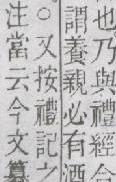 也乃與禮經合
謂養親必有酒
○又按禮記之
注當云今文纂